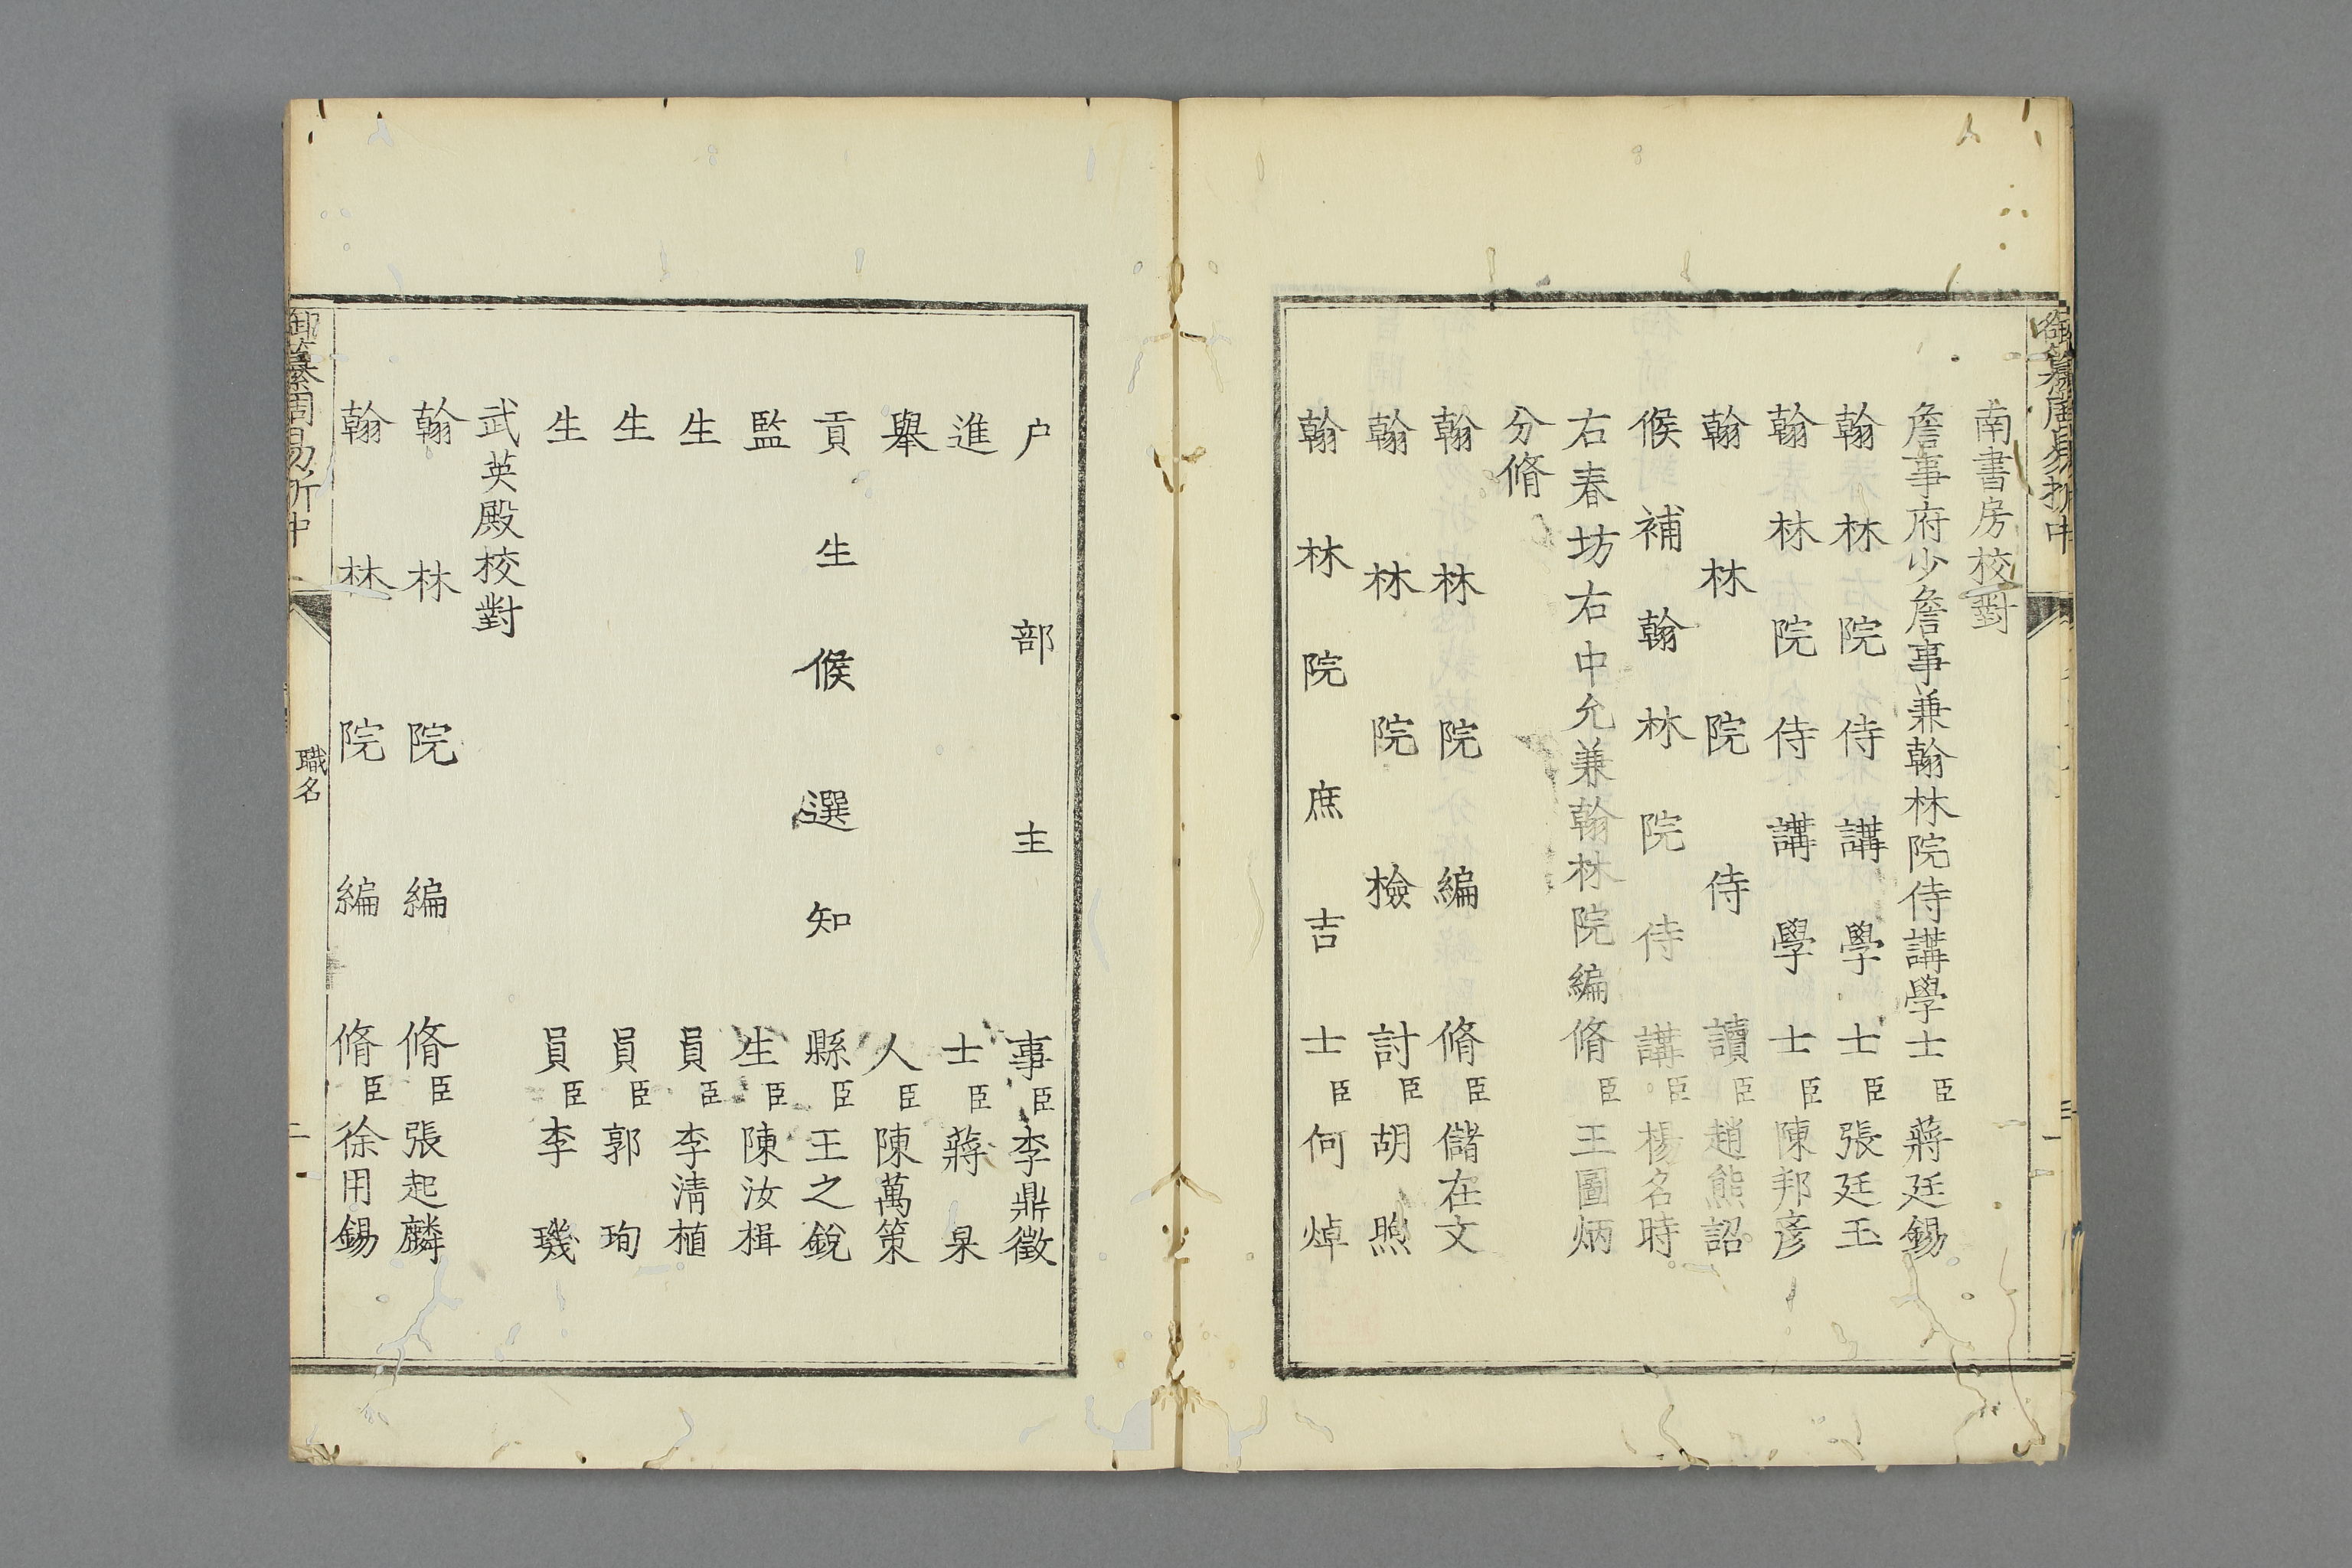 御纂周易折中
南書房校對
詹事府少詹事兼翰林院侍講學士臣蔣廷錫
翰林院侍講學士臣張廷玉
翰林院侍講學士臣陳邦彦
翰林院侍讀臣趙熊詔
候補翰林院侍講臣楊名時
右春坊右中允兼翰林院編脩臣王圖炳
分脩
翰林院編脩臣儲在文
翰林院檢討臣胡煦
翰林院庶吉士臣何焯
户部主事臣李鼎徵
進士臣蔣杲
舉人臣陳萬策
貢生候選知縣臣王之銳
監生臣陳汝楫
生員臣李清植
生員臣郭珣
生員臣李璣
武英殿校對
翰林院編脩臣張起麟
翰林院編脩臣徐用錫
御纂周易折中
職名
二